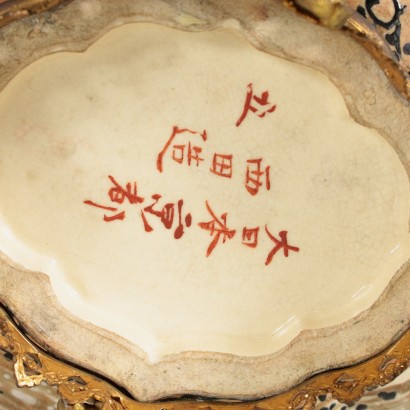 大日本京都
西田造
立